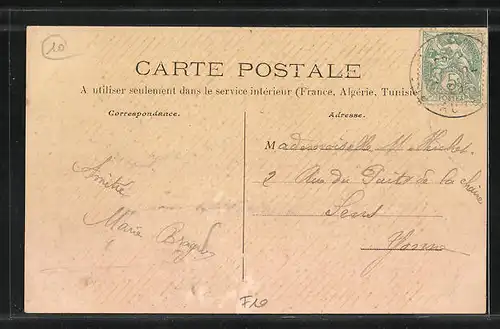 10
CARTE POSTALE
A utiliser seulement dans le service intérieur (France, Algérie, Tunisie
Correspondance.
Adresse.
Mademoiselle M Michel
2 Rue du Puits de la Chaîne
Sens
Yonne
Amitié
Marie
F10